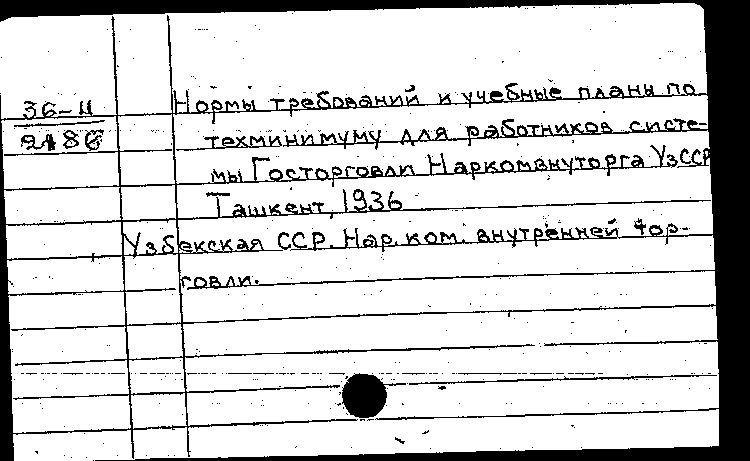 36-11
Нормы требований и учебные планы по
техминимуму для работников систе-
мы Госторговли Наркомвнуторга УзССР
Ташкент, 1936
Узбекская ССР. Нар. ком. внутренней тор-
говли.